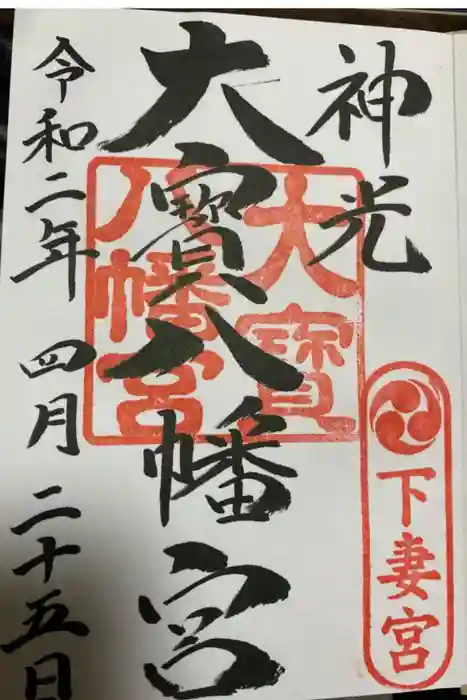 神光
下妻宮
大寳八幡宮
大寳
八幡宮
令和二年 四月 二十五日